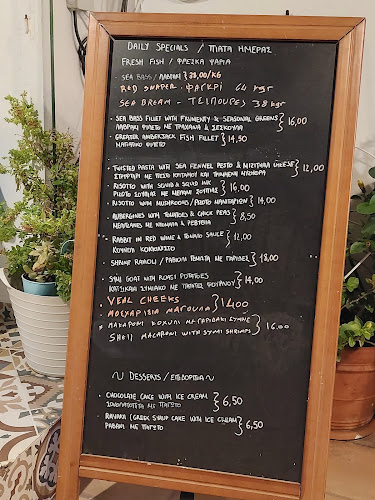 DAILY SPECIALS / ΠΙΑΤΑ ΗΜΕΡΑΣ
FRESH FISH / ΦΡΕΣΚΑ ΨΑΡΙΑ
- SEA BASS / ΛΑΒΡΑΚΙ } 78,00/KG
RED SNAPER - ΦΑΓΚΡΙ 64 kgr
SEA BREAM - ΤΣΙΠΟΥΡΕΣ 38 kgr
• SEA BASS FILLET WITH FRUMENTY & SEASONAL GREENS } 16,00
ΛΑΒΡΑΚΙ ΦΙΛΕΤΟ ΜΕ ΤΡΑΧΑΝΑ &
• GREATER AMBERJACK FISH FILLET } 14,50
ΜΑΓΙΑΤΙΚΟ ΦΙΛΕΤΟ
• TWISTED PASTA WITH SEA FENNEL PESTO & MIZITHRA CHEESE } 12,00
ΣΤΡΙΦΤΑΡΙ ΜΕ ΠΕΣΤΟ ΚΡΙΤΑΜΟΥ ΚΑΙ
• RISOTTO WITH SQUID & SQUID INK } 16,00
ΡΙΖΟΤΟ ΣΟΥΠΙΑΣ ΜΕ ΜΕΛΑΝΙ ΣΟΥΠΙΑΣ
• RISOTTO WITH MUSHROOMS / ΡΙΖΟΤΟ ΜΑΝΙΤΑΡΙΩΝ } 14,00
• AUBERGINES WITH TOMATOES & CHICK PEAS } 8,50
ΜΕΛΙΤΖΑΝΕΣ ΜΕ ΝΤΟΜΑΤΑ & ΡΕΒΥΘΙΑ
• RABBIT IN RED WINE & TOMATO SAUCE } 12,00
ΚΟΥΝΕΛΙ ΚΟΚΚΙΝΙΣΤΟ
• SHRIMP RAVIOLI / ΡΑΒΙΟΛΙ ΓΕΜΙΣΤΑ ΜΕ ΓΑΡΙΔΕΣ } 18,00
• SYMI GOAT WITH ROAST POTATOES } 14,00
ΚΑΤΣΙΚΑΚΙ ΣΥΜΙΑΚΟ ΜΕ ΠΑΤΑΤΕΣ ΦΟΥΡΝΟΥ
• VEAL CHEEKS } 14.00
• ΜΟΣΧΑΡΙΣΙΑ ΜΑΓΟΥΛΑ
• ΜΑΚΑΡΟΝΙ ΚΟΧΥΛΙ ΜΕ ΓΑΡΙΔΑΚΙ ΣΥΜΗΣ } 16.00
SHELL MACARONI WITH SYMI SHRIMPS
~ DESSERTS / ΕΠΙΔΟΡΠΙΑ ~
• CHOCOLATE CAKE WITH ICE CREAM } 6,50
ΣΟΚΟΛΑΤΟΠΙΤΑ ΜΕ ΠΑΓΩΤΟ
• RAVAKI (GREEK SYRUP CAKE WITH ICE CREAM } 6,50
ΡΑΒΑΝΙ ΜΕ ΠΑΓΩΤΟ